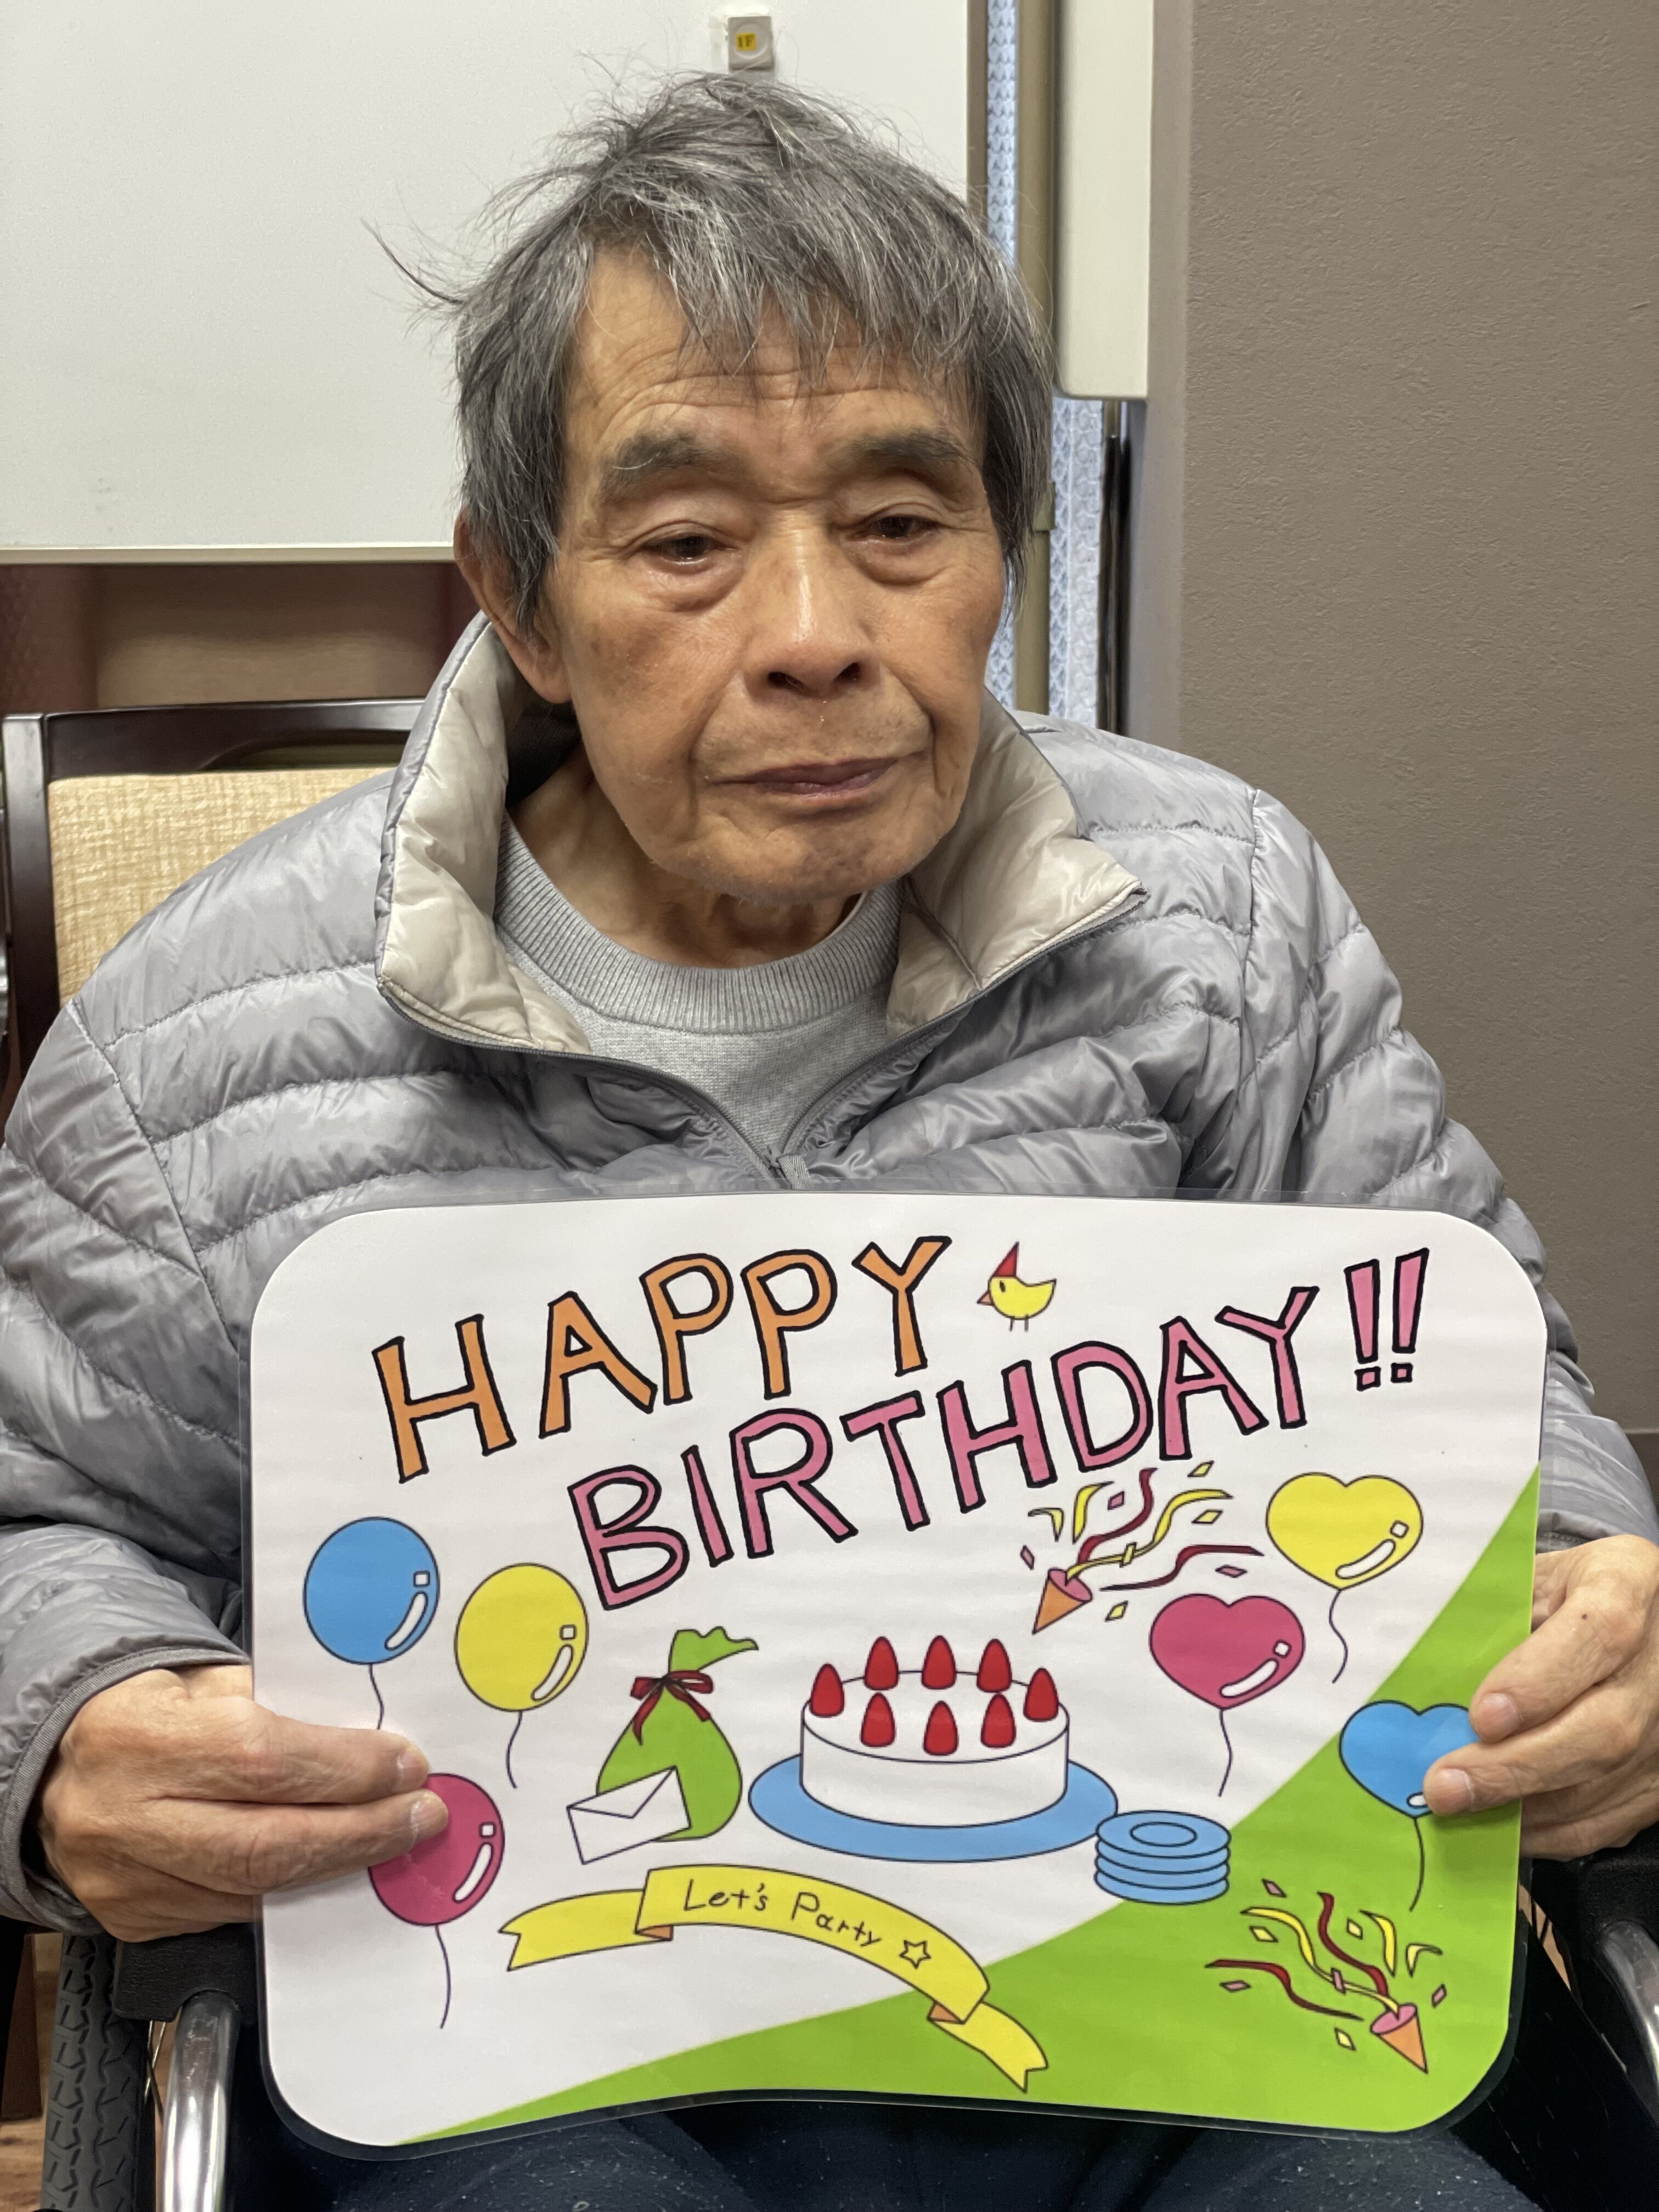 1F
HAPPY
BIRTHDAY!!
Let's Party ☆